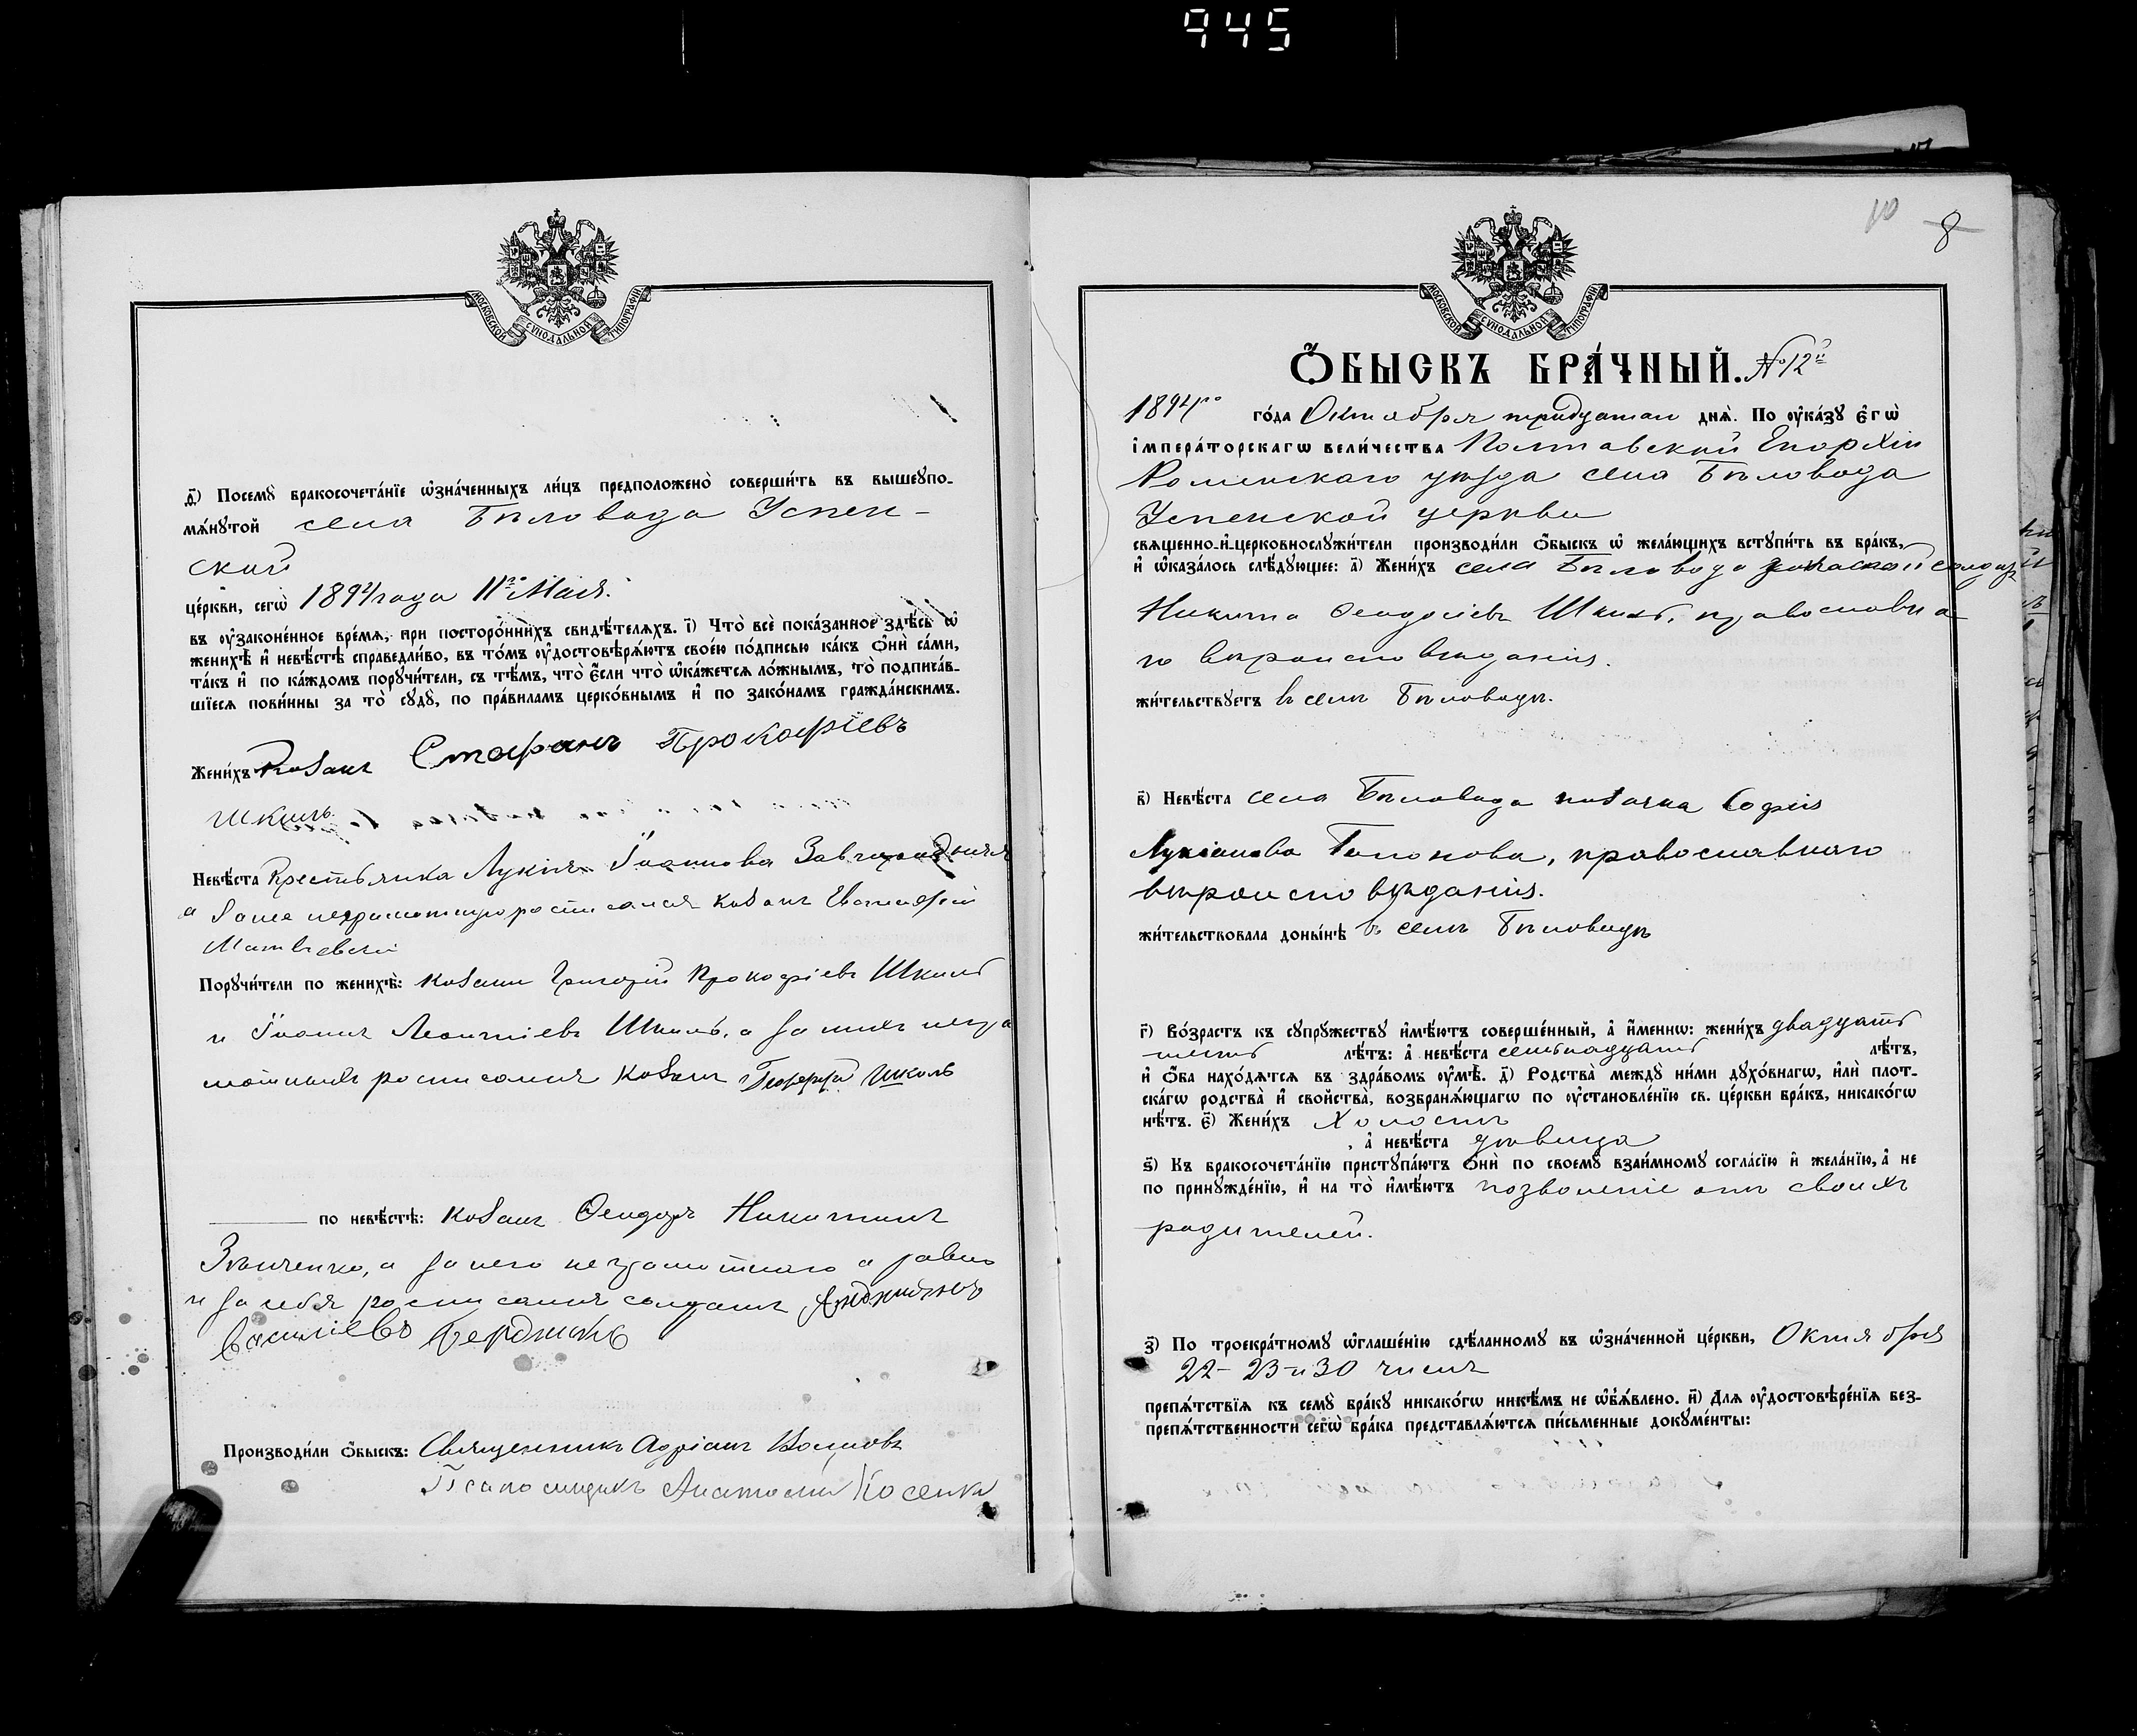 945
МОСКОВСКОЙ СѴНОДАЛЬНОЙ ТИПОГРАФІИ
ѳ҃) Посемꙋ̀ бракосочета́нїе ѡ҆зна́ченныхъ ли́цъ предположено̀ соверши́ть въ вышеꙋпо-
мѧ́нꙋтой села Бѣловода Успен-
ской
це́ркви, сегѡ̀ 1894 года 11го Мая.
въ ᲂу҆зако́ненное вре́мѧ, при посторо́ннихъ свидѣ́телѧхъ. і҃) Что̀ всѐ пока́занное здѣ́сь ѡ҆
женихѣ̀ и҆ невѣ́стѣ справедли́во, въ то́мъ ᲂу҆достовѣрѧ́ютъ свое́ю по́дписью ка́къ ѻ҆нѝ са́ми,
та́къ и҆ по ка́ждомъ порꙋчи́тели, съ тѣ́мъ, что̀ є҆́сли что̀ ѡ҆ка́жется ло́жнымъ, то̀ подписа́в-
шїеся пови́нны за то̀ сꙋдꙋ̀, по пра́виламъ церко́внымъ и҆ по зако́намъ гражда́нскимъ.
Жени́хъ Козакъ Стефанъ Прокофіевъ
Шкиль
Невѣ́ста Крестьянка Лукія Іоаннова
а за нее неграмотную росписался козакъ
Порꙋчи́тели по женихѣ̀: козаки Григорій Прокофіевъ Шкиль
и Іоаннъ Леонтіевъ Шкиль, а за нихъ негра
мотныхъ росписался козакъ Шкиль
по невѣ́стѣ: козакъ Ѳеодоръ Никитинъ
а за него неграмотнаго а равно
и за себя росписался солдатъ
Василіевъ Бердникъ
Производи́ли ѻ҆́быскъ: Священникъ Адріанъ
Псаломщикъ Анатолій Косенко
10 8
МОСКОВСКОЙ СѴНОДАЛЬНОЙ ТИПОГРАФІИ
Ѻ҆́БЫСКЪ БРА́ЧНЫЙ. №12й
1894го го́да Октября тридцатаго днѧ̀. По ᲂу҆ка́зꙋ є҆гѡ̀
і҆мпера́торскагѡ вели́чества Полтавской Епархіи
Роменскаго уѣзда села Бѣловода
Успенской церкви
священно-и҆-церковнослꙋжи́тели производи́ли ѻ҆́быскъ ѡ҆ жела́ющихъ встꙋпи́ть въ бра́къ,
и҆ ѡ҆каза́лось слѣ́дꙋющее: а҃) Жени́хъ села Бѣловода
Никита Ѳеодосіевъ Шкиль, православна
го вѣроисповѣданія.
жи́тельствꙋетъ въ селѣ Бѣловодѣ.
в҃) Невѣ́ста села Бѣловода козачка Софія
Лукіанова православнаго
вѣроисповѣданія.
жи́тельствовала доны́нѣ въ селѣ Бѣловодѣ
г҃) Во́зрастъ къ сꙋпрꙋ́жествꙋ и҆мѣ́ютъ соверше́нный, а҆ и҆́менно: жени́хъ двадцать
лѣ́тъ: а҆ невѣ́ста семнадцать лѣ́тъ,
и҆ ѻ҆́ба нахо́дѧтсѧ въ здра́вомъ ᲂу҆мѣ̀. д҃) Родства̀ междꙋ̀ ни́ми дꙋхо́внагѡ, и҆лѝ плот-
ска́гѡ родства̀ и҆ свойства̀, возбранѧ́ющагѡ по ᲂу҆становле́нїю св. це́ркви бра́къ, никако́гѡ
нѣ́тъ. є҃) Жени́хъ Холостъ
, а҆ невѣ́ста дѣвица
ѕ҃) Къ бракосочета́нїю пристꙋпа́ютъ ѻ҆нѝ по своемꙋ̀ взаи́мномꙋ согла́сїю и҆ жела́нїю, а҆ не
по принꙋжде́нїю, и҆ на то̀ и҆мѣ́ютъ позволеніе отъ своихъ
родителей.
з҃) По троекра́тномꙋ ѡ҆глаше́нїю сдѣ́ланномꙋ въ ѡ҆зна́ченной це́ркви, Октября
22- 23-и 30 чиселъ
препѧ́тствїѧ къ семꙋ̀ бра́кꙋ никако́гѡ никѣ́мъ не ѡ҆б̾ѧ́влено. и҃) Для ᲂу҆достовѣре́нїѧ без-
препѧ́тственности сегѡ̀ бра́ка представлѧ́ютсѧ пи́сьменные докꙋме́нты: